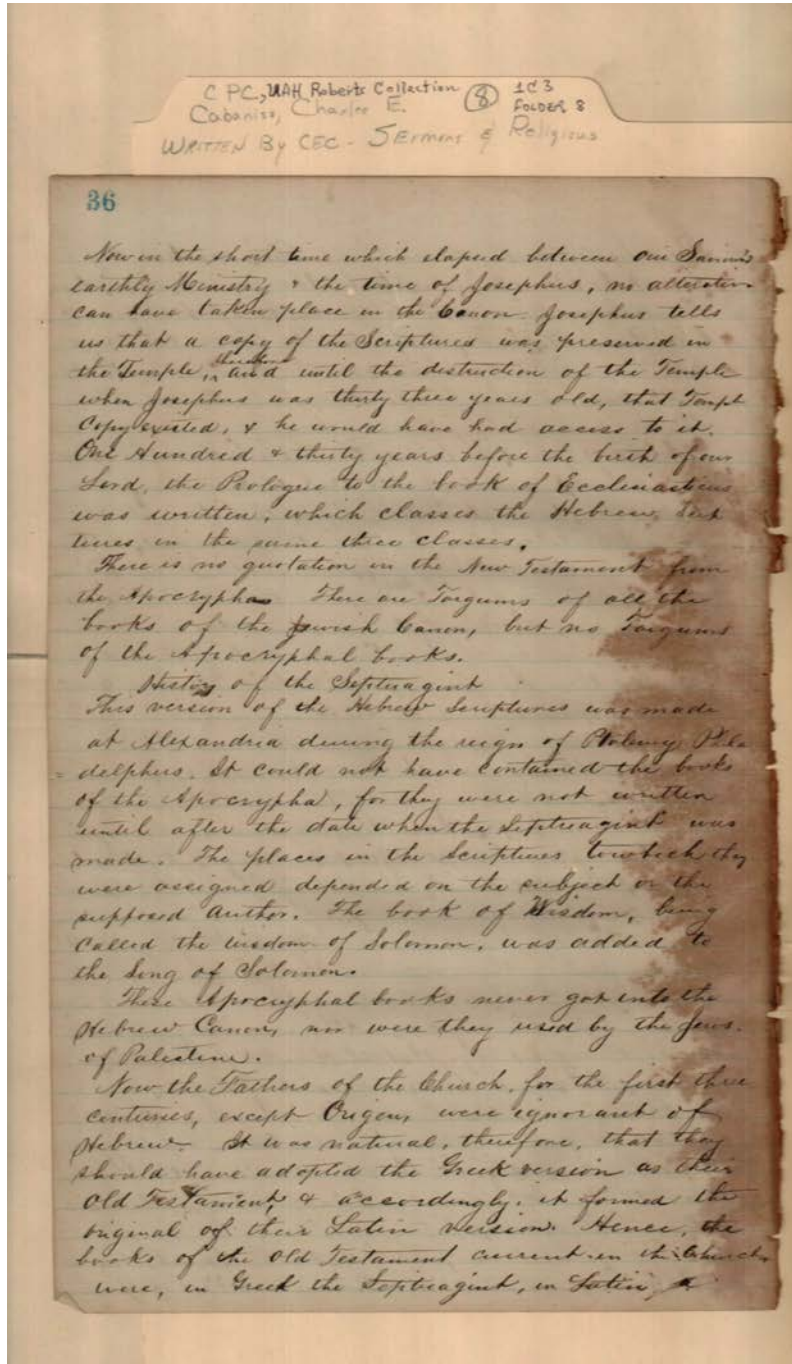 C PC, UAH Roberts Collection ⑧ 1C3
Cabaniss, Charles E. FOLDER 8
WRITTEN By CEC - SERMONS & Religious
36
Now in the short time which elapsed between our Saviour's
earthly Ministry & the time of Josephus, no alteration
can have taken place in the Canon. Josephus tells
us that a copy of the Scriptures was preserved in
the Temple, therefore and until the destruction of the Temple
when Josephus was thirty three years old, that Templ
Copy existed, & he would have had access to it.
One Hundred & thirty years before the birth of our
Lord, the Prologue to the book of Ecclesiasticus
was written, which classes the Hebrew Scrip
tures in the same three classes.
There is no quotation in the New Testament from
the Apocrypha. There are Targums of all the
books of the Jewish Canon, but no Targums
of the Apocryphal books.
History of the Septuagint
This version of the Hebrew Scriptures was made
at Alexandria during the reign of Ptolemy Phila
= delphus. It could not have contained the books
of the Apocrypha, for they were not written
until after the date when the Septuagint was
made. The places in the Scriptures to which they
were assigned depended on the subject or the
supposed Author. The book of Wisdom, being
Called the wisdom of Solomon, was added to
the Song of Solomon.
These Apocryphal books never got into the
Hebrew Canon, nor were they used by the Jews.
of Palestine.
Now the Fathers of the Church, for the first three
centuries, except Origen, were ignorant of
Hebrew. It was natural, therefore, that they
should have adopted the Greek version as their
Old Testament, & accordingly, it formed the
original of their Latin version. Hence, the
books of the Old Testament current in the Church
were, in Greek the Septuagint, in Latin,